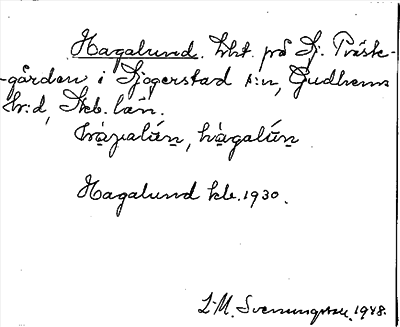 Hagalund. lht. på St. Präst-
-gården i Sjogerstad s:n, Gudhems
hr:d, Skb. län.
hagalún, hagalún
Hagalund kb. 1930.
L-M. Svenungsson. 1948.